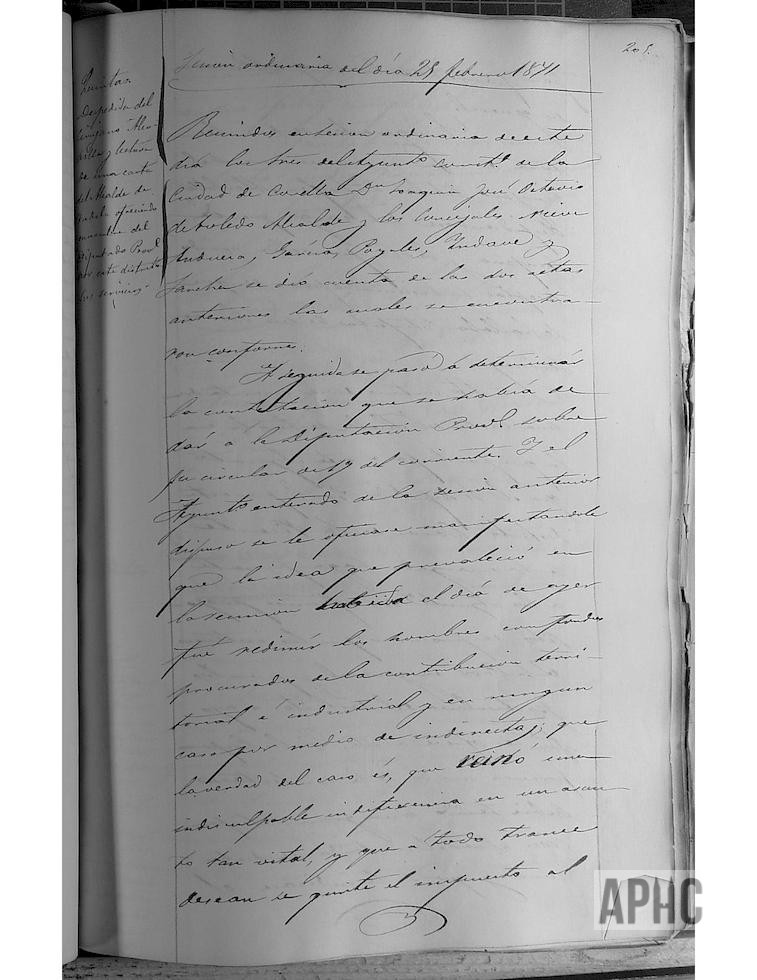 205.
Sesión ordinaria del día 25 febrero 1871
Quintas.
Despedida del
Cirujano
y lectura
de una carta
del Alcalde de
ofreciendo
del
Diputado Provl
por este distrito
sus servicios.
Reunidos en sesion ordinaria de este
dia los tres del Ayunto Constl. de la
Ciudad de Corella Dn Joaquin José Octavio
de Toledo Alcalde y los Concejales
Andueza, García, Poyales, Yndave y
Sanchez se dió cuenta de las dos actas
anteriores las cuales se encontra-
ron conformes.
A seguida se pasó á determinar
la contestacion que se habia de
dar á la Diputación Provl. sobre
su circular de 17 del corriente. Y el
Ayunto enterado de la sesion anterior
dispuso se le oficiase manifestandole
que la idea que prevaleció en
la reunion habida el día de ayer
fué redimir los hombres con fondos
procurados de la contribucion terri-
torial é industrial y en ningun
caso por medio de indirectas; que
la verdad del caso és, que reinó una
indisculpable indiferencia en un asun-
to tan vital, y que a todo trance
desean se quite el impuesto al
APHC